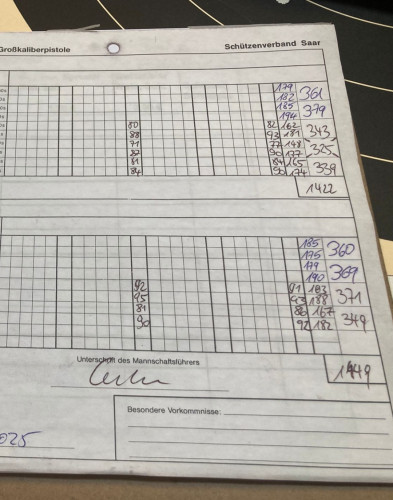 Großkaliberpistole Schützenverband Saar
179 361
182
185 379
194
80 82 162 343
88 93 181
71 77 148 325
87 90 177
81 84 165 339
84 90 174
1422
185 360
175
179 369
190
92 91 183 371
95 93 188
81 86 167 349
90 92 182
1449
Unterschrift des Mannschaftsführers
Besondere Vorkommnisse:
025